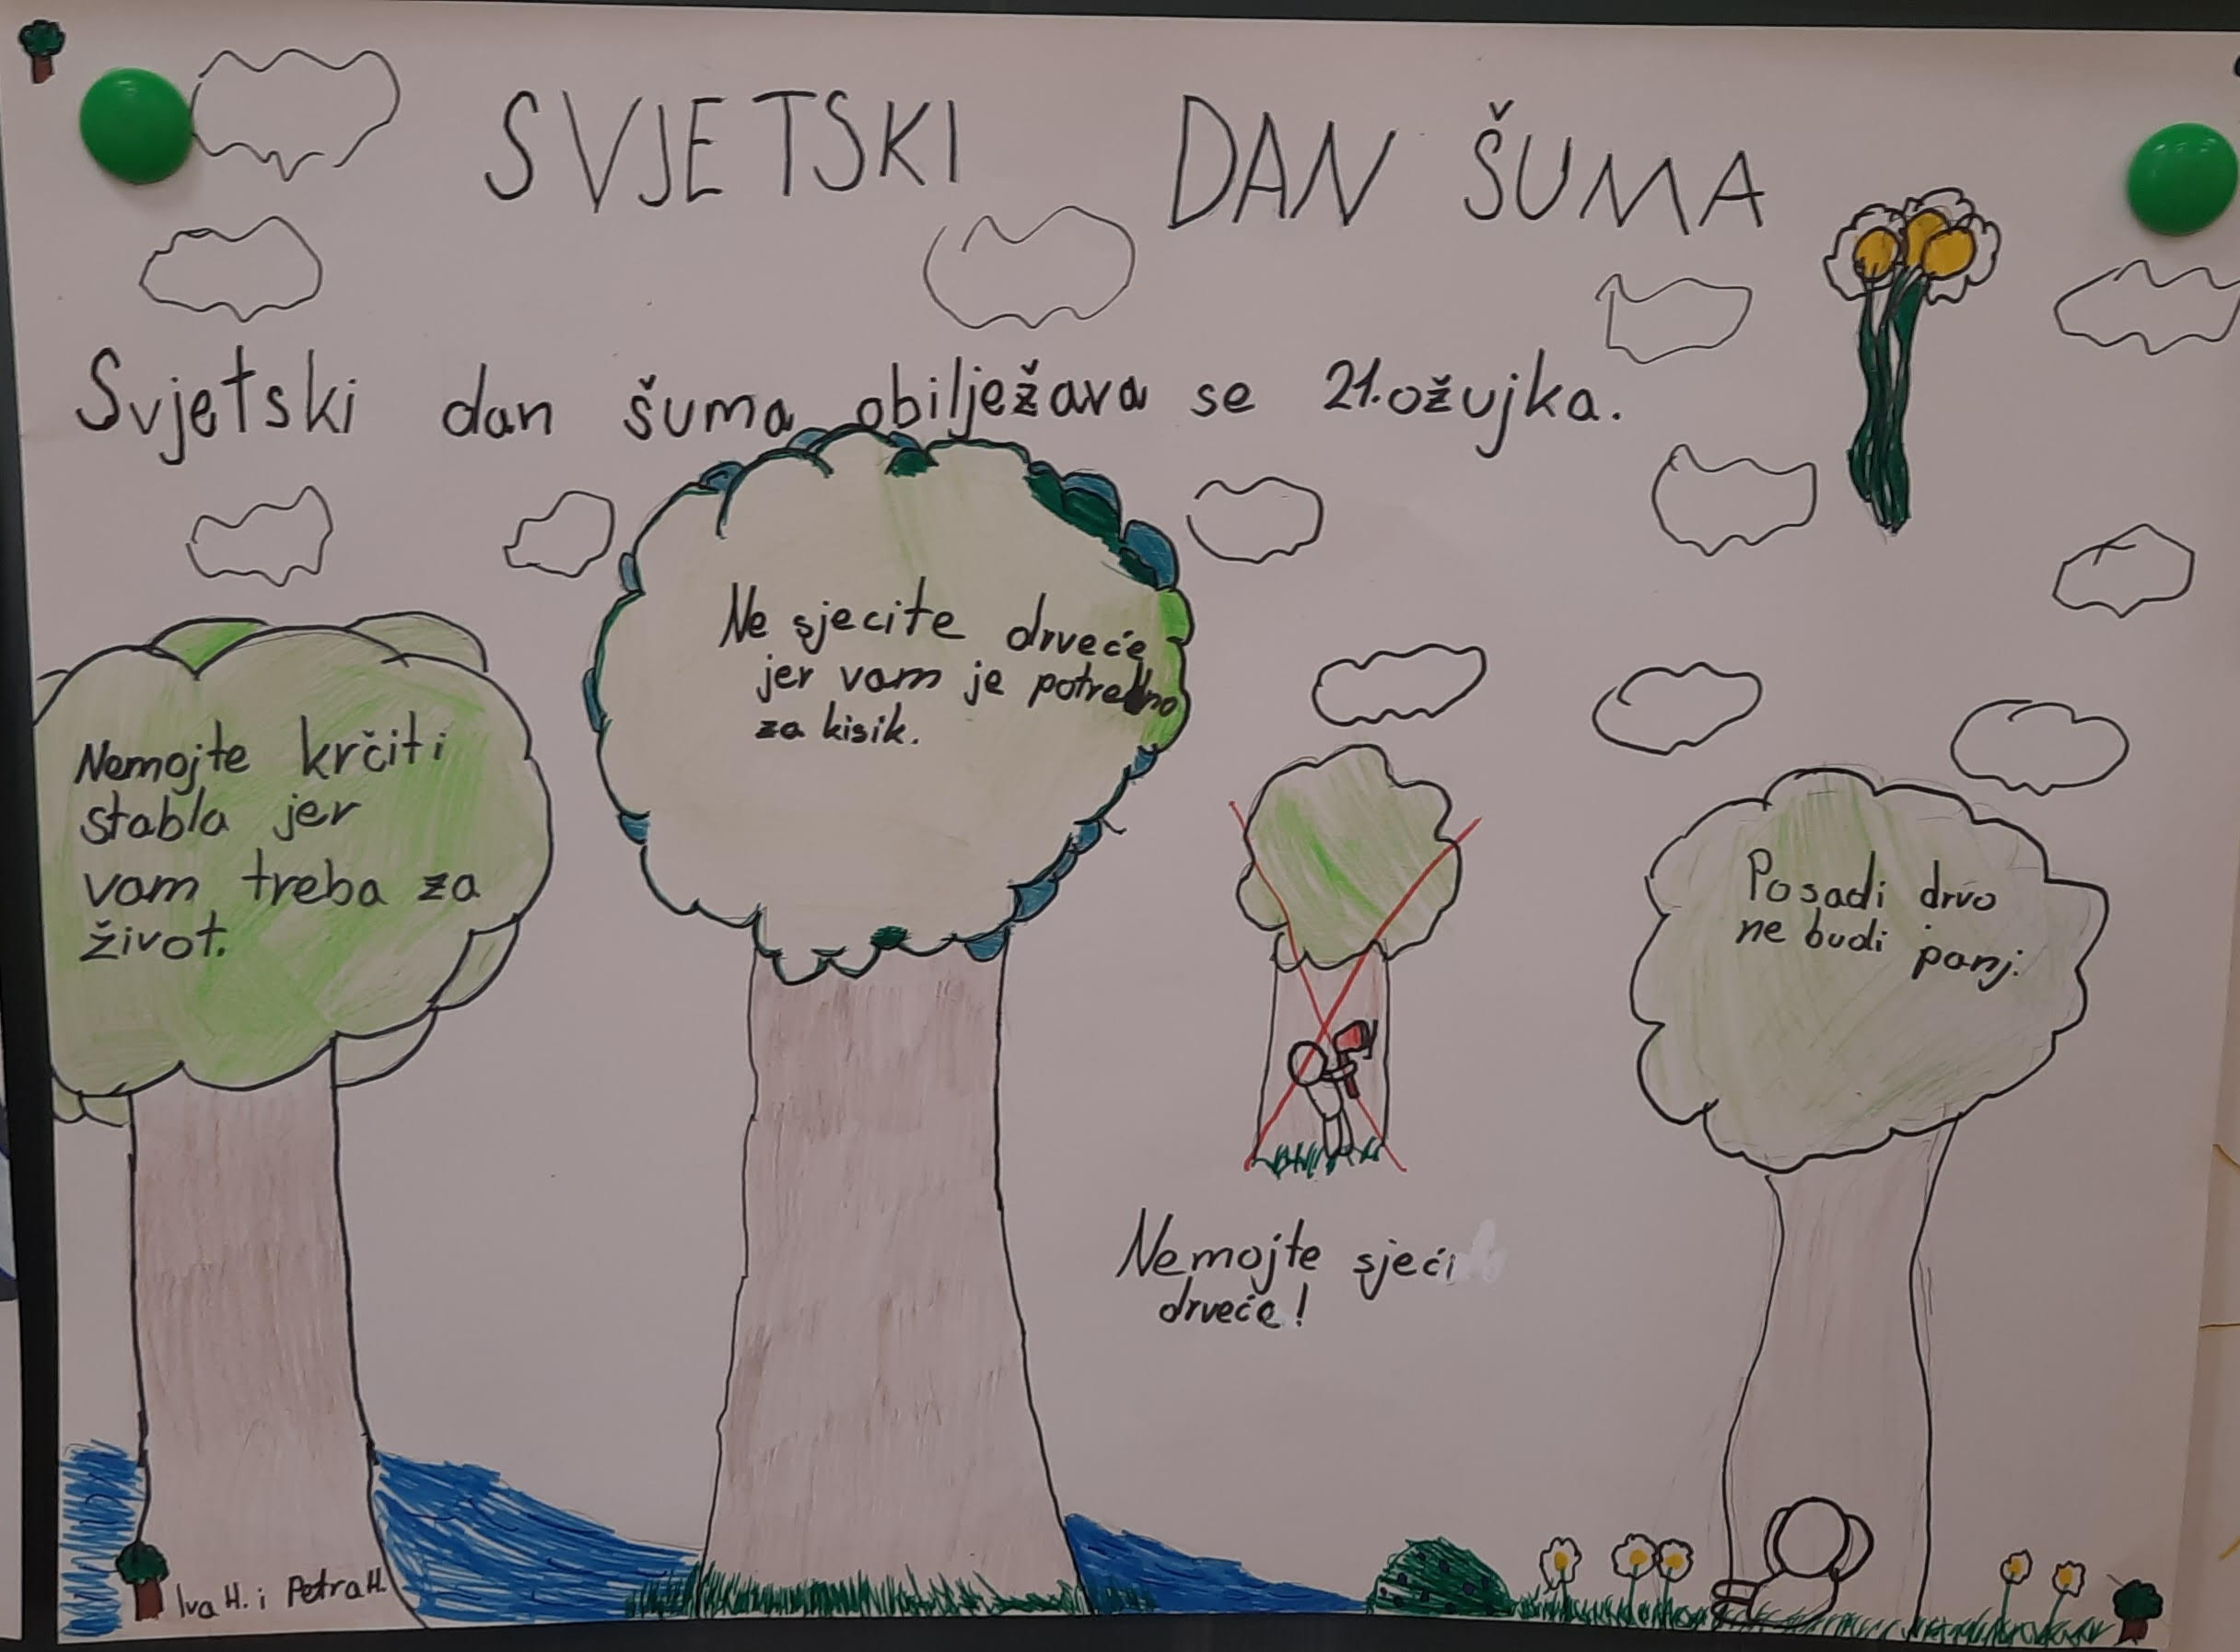 SVJETSKI DAN ŠUMA
Svjetski dan šuma obilježava se 21.ožujka.
Nemojte krčiti
stabla jer
vam treba za
život.
Ne sjecite drveće
jer vam je potrebno
za kisik.
Nemojte sjeći
drveće!
Posadi drvo
ne budi panj.
Iva H. i Petra H.